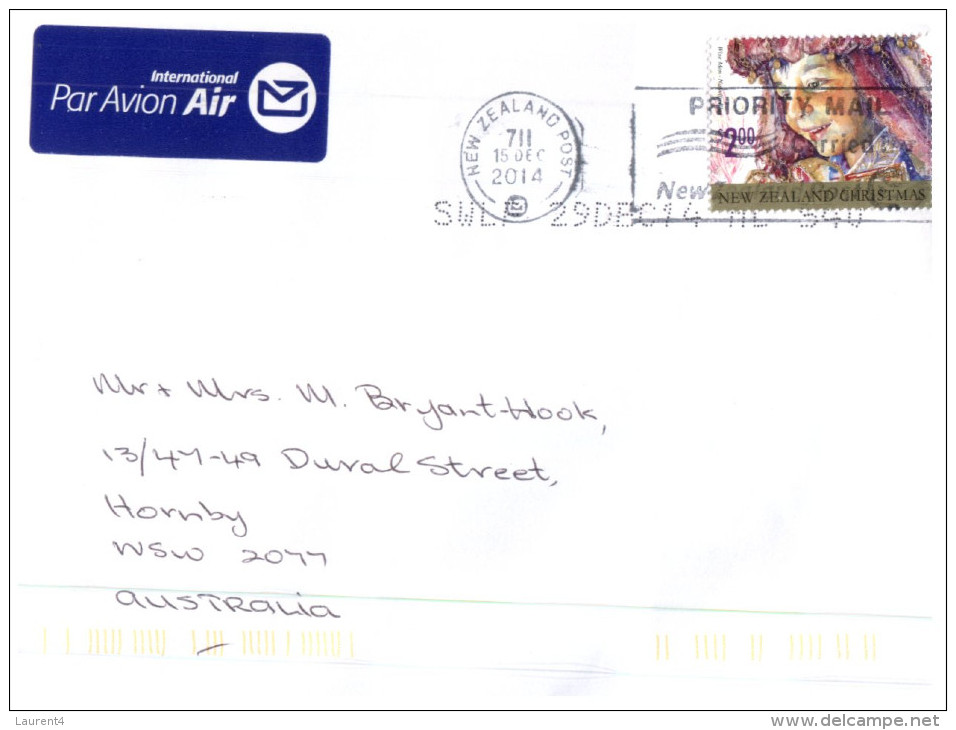 International
Par Avion Air
NEW ZEALAND POST
711
15 DEC
2014
PRIORITY MAIL
$2.00 carried
New
NEW ZEALAND CHRISTMAS
SWLF 29DEC14 ML 340
Mr + Mrs. M. Bryant-Hook,
13/47-49 Dural Street,
Hornby
NSW 2077
AUSTRALIA
Laurent4
www.delcampe.net